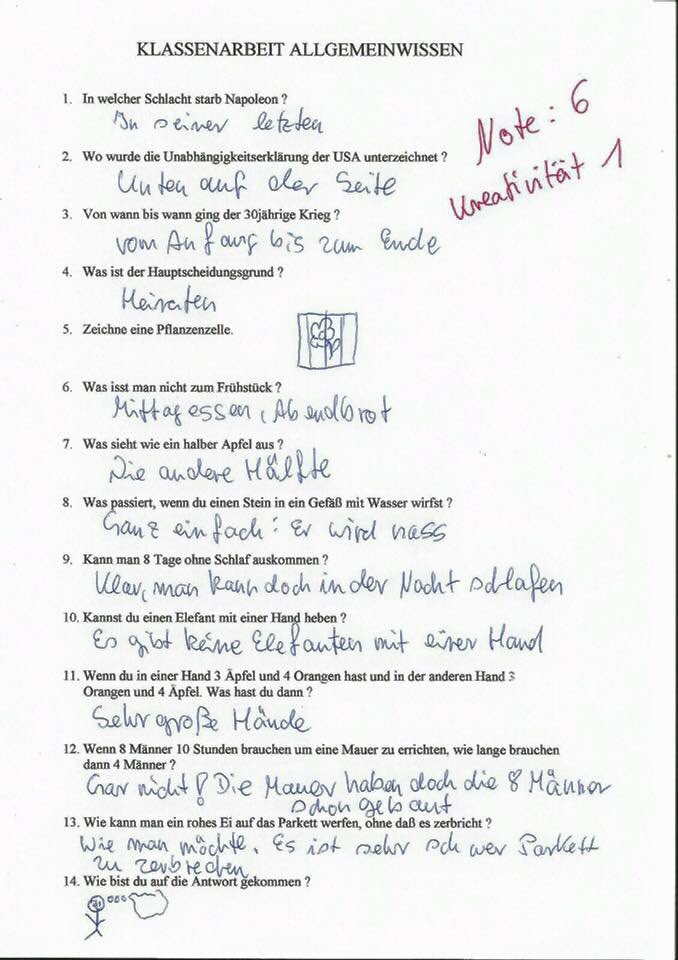 KLASSENARBEIT ALLGEMEINWISSEN
1. In welcher Schlacht starb Napoleon ?
In seiner letzten
Note : 6
Kreativität 1
2. Wo wurde die Unabhängigkeitserklärung der USA unterzeichnet ?
Unten auf der Seite
3. Von wann bis wann ging der 30jährige Krieg ?
vom Anfang bis zum Ende
4. Was ist der Hauptscheidungsgrund ?
Heiraten
5. Zeichne eine Pflanzenzelle.
6. Was isst man nicht zum Frühstück ?
Mittagessen, Abendbrot
7. Was sieht wie ein halber Apfel aus ?
Die andere Hälfte
8. Was passiert, wenn du einen Stein in ein Gefäß mit Wasser wirfst ?
Ganz einfach: Er wird nass
9. Kann man 8 Tage ohne Schlaf auskommen ?
Klar, man kann doch in der Nacht schlafen
10. Kannst du einen Elefant mit einer Hand heben ?
Es gibt keine Elefanten mit einer Hand
11. Wenn du in einer Hand 3 Äpfel und 4 Orangen hast und in der anderen Hand 3
Orangen und 4 Äpfel. Was hast du dann ?
Sehr große Hände
12. Wenn 8 Männer 10 Stunden brauchen um eine Mauer zu errichten, wie lange brauchen
dann 4 Männer ?
Gar nicht! Die Mauer haben doch die 8 Männer
schon gebaut
13. Wie kann man ein rohes Ei auf das Parkett werfen, ohne daß es zerbricht ?
Wie man möchte. Es ist sehr schwer Parkett
zu zerbrechen
14. Wie bist du auf die Antwort gekommen ?